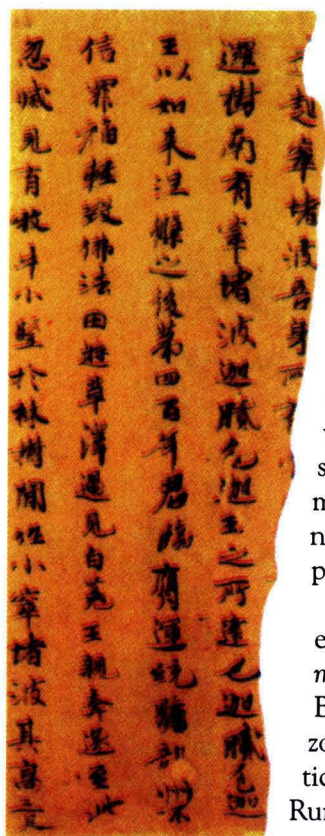 王起窣堵波吾身所有
邏樹南有窣堵波迦膩色迦王之所建也迦膩色迦
王以如来涅槃之後第四百年君臨膺運統贍部洲
信罪福輕毀佛法田遊草澤遇見白菟王親奔逐至此
忽滅見有牧牛小豎於林樹間作小窣堵波其高三尺
s
m
n
p
e
n
B
zo
tic
Ru